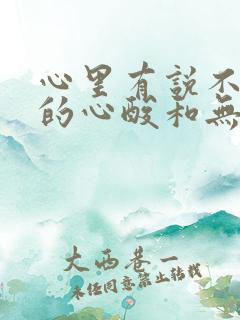 心里有説不
的心酸和無
大西巷一
未经同意禁止转载